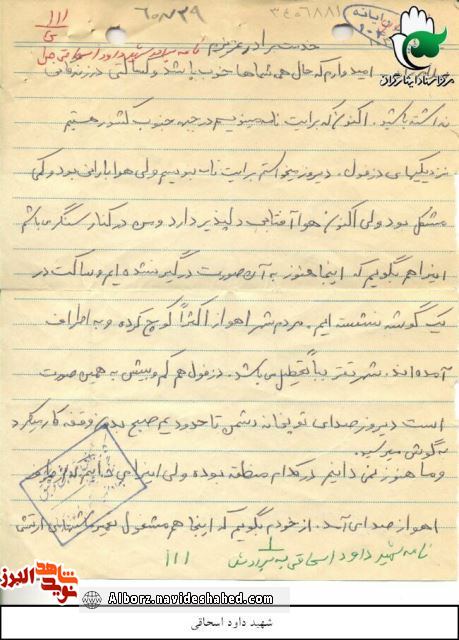 ۱۱۱
۶۰/۸/۲۹
۳۴۰۶۸۸۱
مرکز اسناد ایثارگران
نامه شهید داود اسحاقی
خدمت برادر عزیزم
امیدوارم که حال همی شماها خوب باشد و کسالتی در زندگانی
نداشته باشید. اکنون که برایت نامه مینویسم در جبهه جنوب کشور هستیم
نزدیکیهای دزفول. دیروز میخواستم برایت نامه بنویسم ولی هوا بارانی بود و کمی
مشکل بود ولی اکنون هوا آفتابی و دلپذیر دارد و من در کنار سنگر می‌باشم
اینرا هم بگویم که اینجا هنوز به آن صورت درگیر نشده ایم و ساکت در
یک گوشه نشسته ایم. مردم شهر اهواز اکثراً کوچ کرده و به اطراف
آمده‌اند. شهر تقریباً تعطیل می باشد. دزفول هم کم و بیش به همین صورت
است دیروز صدای توپخانه دشمن تا حدود نیم صبح بدون وقفه کار میکرد
به گوش میرسید.
و ما هنوز نمی دانیم در کدام منطقه بوده ولی اینرا می دانیم که از
اهواز صدا می آید. از خودم بگویم که اینجا هم مشغول تعمیر ماشینهای ارتشی
نامه شهید داود اسحاقی به برادرش
۱۱۱
نوید شاهد البرز
Alborz.navideshahed.com
شهید داود اسحاقی